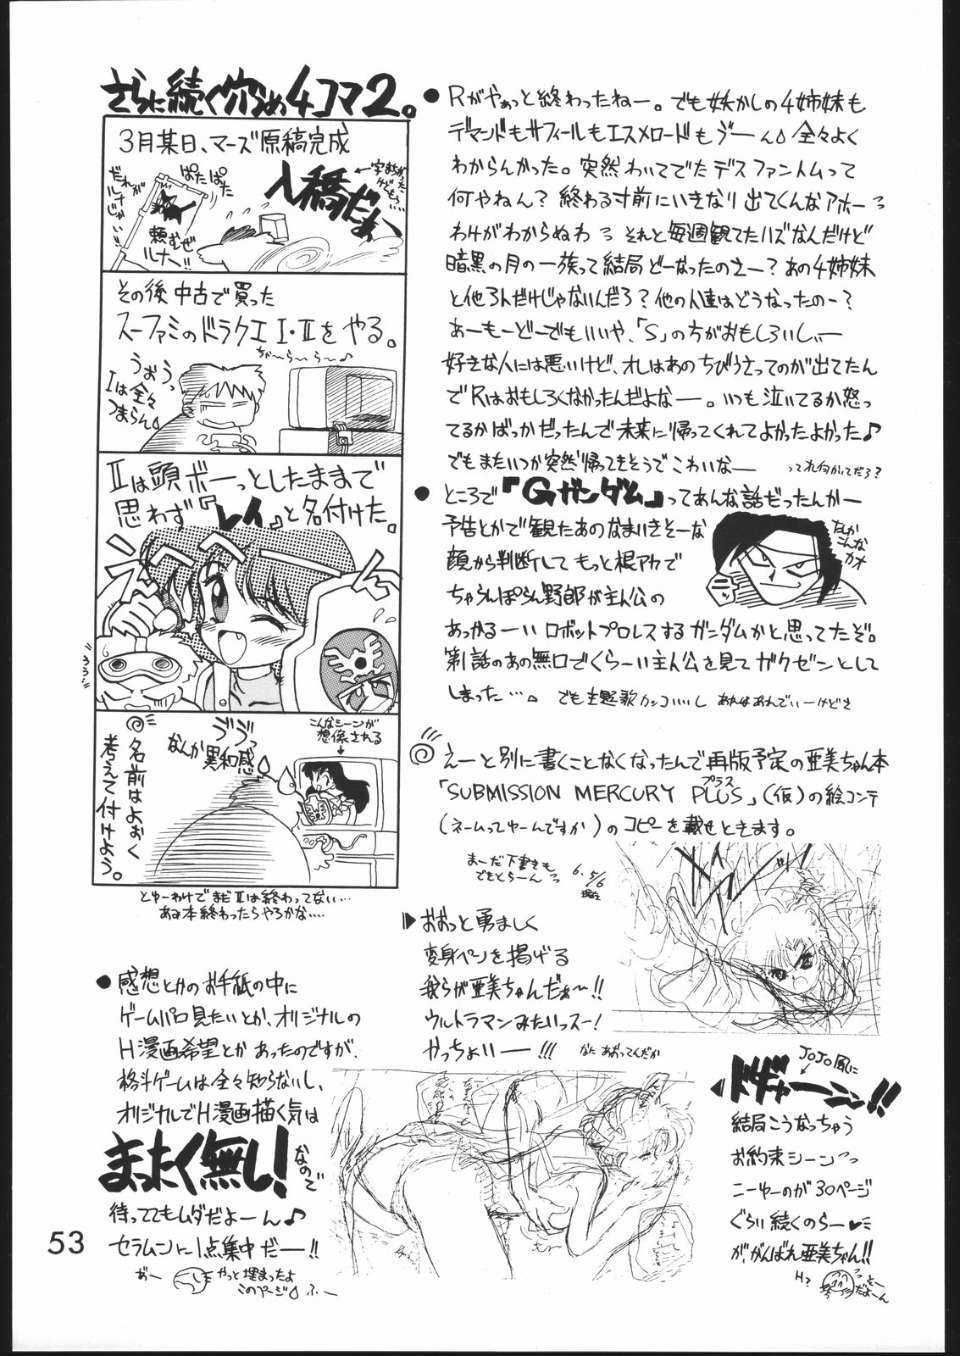 さらに続く穴うめ4コマ2。
3月某日、マーズ原稿完成
入稿だぁ
ぱたぱた
だれがルナーじゃい!!
頼むぜルナー!!
その後中古で買った
スーファミのドラクエⅠ・Ⅱをやる。
ちゃ〜ら〜ら〜♪
うぉぅっ
Ⅰは全々
つまらん
Ⅱは頭ボーっとしたままで
思わず『レイ』と名付けた。
こんなシーンが
想像される
ブブッ
なんか異和感
◎名前はよおく
考えて付けよう。
とゆーわけでまだⅡは終わってない…
あみ本終わったらやろかな‥‥
●感想とかのお手紙の中に
ゲームパロ見たいとか、オリジナルの
H漫画希望とかあったのですが、
格斗ゲームは全々知らないし、
オリジナルでH漫画描く気は
まったく無し!なので
待っててもムダだよーん♪
セラムンに1点集中だー!!
やっと埋まったよ
このページ ふー
53
●Rがやぁっと終わったねー。でも妖かしの4姉妹も
デマンドもサフィールもエスメロードもう゛ーん 全々よく
わからんかった。突然わいてでたデスファントムって
何やねん?終わる寸前にいきなり出てくんなアホーっ
わけがわからぬわっ それと毎週観てたハズなんだけど
暗黒の月の一族って結局どーなったのさー?あの4姉妹
と他3人だけじゃないんだろ?他の人達はどうなったのー?
あーもーどーでもいいや、「S」の方がおもしろいしぃー
好きな人には悪いけど、オレはあのちびうさってのが出てたん
でRはおもしろくなかったんだよなー。いつも泣いてるか怒っ
てるかばっかだったんで未来に帰ってくれてよかったよかった♪
でもまたいつか突然帰ってきそうでこわいなー
●ところで『Gガンダム』ってあんな話だったんかー
予告とかで観たあのなまいきそーな
顔から判断してもっと根アカで
ちゃらんぽらん野郎が主人公の
あっかるーいロボットプロレスするガンダムかと思ってたぞ。
第1話のあの無口でくらーい主人公を見てガクゼンとして
しまった…。でも主題歌カッコいいし あれはあれでいーけどさ
なんか
こんな
カオ
◎えーと別に書くことなくなったんで再版予定の亜美ちゃん本
「SUBMISSION MERCURY PLUS」(仮)の絵コンテ
プラス
(ネームってゆーんですか)のコピーを載せときます。
まーだ下書きも
でもとらーん
6.5/6
現在
▶おおっと勇ましく
変身ペンを掲げる
我らが亜美ちゃんだぁ〜!!
ウルトラマンみたいっスー!
やっちょいー!!!
なにあおってんだか
JoJo風に
◀ドギャーン!!
結局こうなっちゃう
お約束シーンっっ
こーゆーのが30ページ
ぐらい続くのらー♥
が、がんばれ亜美ちゃん!!